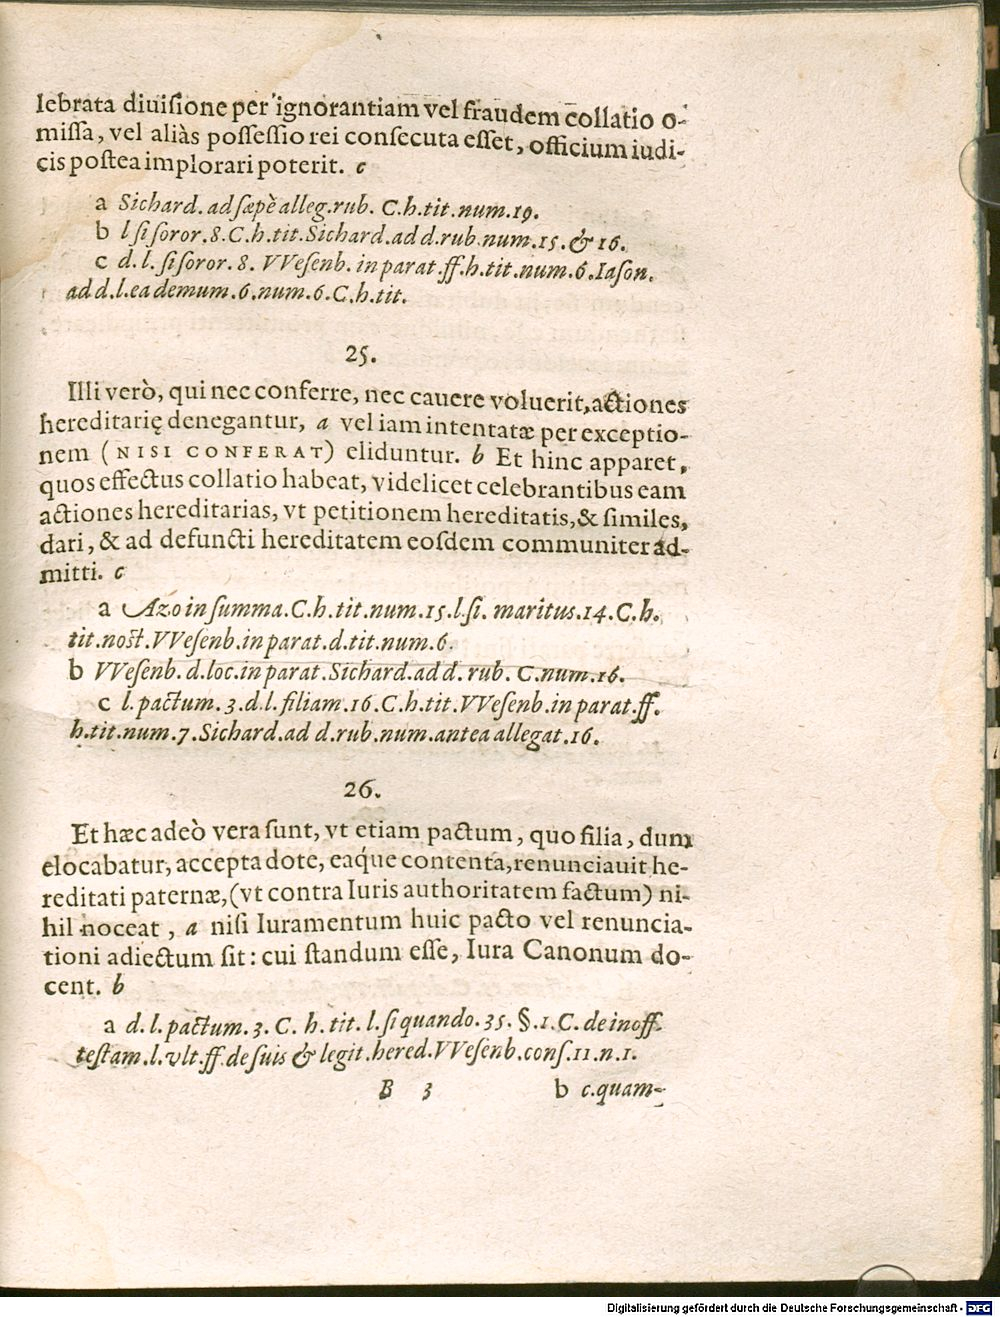 lebrata diuiſione per ignorantiam vel fraudem collatio o-
miſſa, vel aliàs poſſeſſio rei conſecuta eſſet, officium iudi-
cis poſtea implorari poterit. c
a Sichard. ad ſæpè alleg. rub. C. h. tit. num. 19.
b l ſi ſoror. 8. C. h. tit. Sichard. ad d. rub. num. 15. & 16.
c d. l. ſi ſoror. 8. VVeſenb. in parat. ff. h. tit. num. 6. Iaſon.
ad d. l. ea demum. 6. num. 6. C. h. tit.
25.
Illi verò, qui nec conferre, nec cauere voluerit, actiones
hereditarię denegantur, a vel iam intentatæ per exceptio-
nem (NISI CONFERAT) eliduntur. b Et hinc apparet,
quos effectus collatio habeat, videlicet celebrantibus eam
actiones hereditarias, vt petitionem hereditatis, & ſimiles,
dari, & ad defuncti hereditatem eoſdem communiter ad-
mitti. c
a Azo in ſumma. C. h. tit. num. 15. l. ſi. maritus. 14. C. h.
tit. noſt. VVeſenb. in parat. d. tit. num. 6.
b VVeſenb. d. loc. in parat. Sichard. ad d. rub. C. num. 16.
c l. pactum. 3. d. l. filiam. 16. C. h. tit. VVeſenb. in parat. ff.
h. tit. num. 7. Sichard. ad d. rub. num. antea allegat. 16.
26.
Et hæc adeò vera ſunt, vt etiam pactum, quo filia, dum
elocabatur, accepta dote, eaq́ue contenta, renunciauit he-
reditati paternæ, (vt contra Iuris authoritatem factum) ni-
hil noceat, a niſi Iuramentum huic pacto vel renuncia-
tioni adiectum ſit: cui ſtandum eſſe, Iura Canonum do-
cent. b
a d. l. pactum. 3. C. h. tit. l. ſi quando. 35. §. 1. C. de inoff.
teſtam. l. vlt. ff. de ſuis & legit. hered. VVeſenb. conſ. 11. n. 1.
B 3 b c. quam-
Digitalisierung gefördert durch die Deutsche Forschungsgemeinschaft - DFG